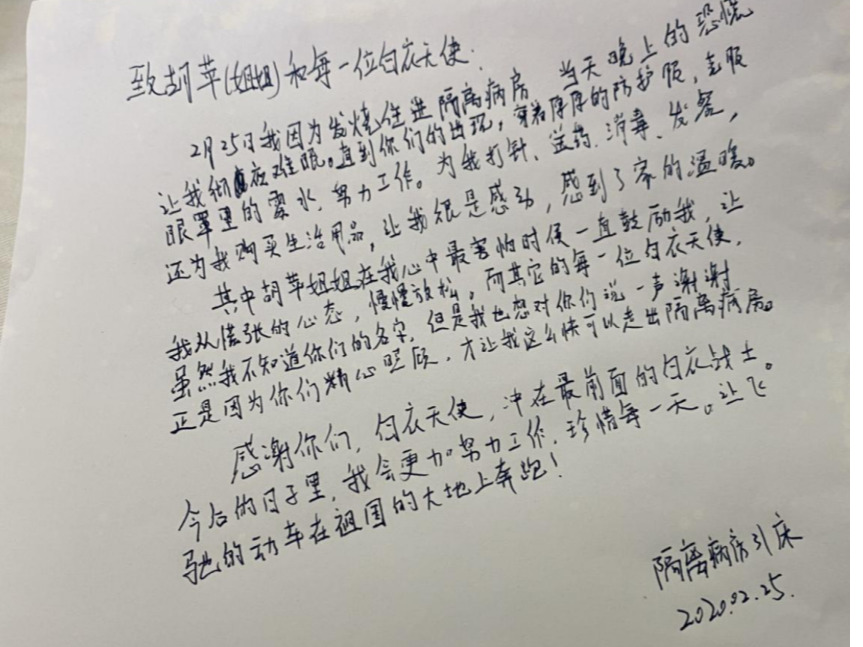 致胡苹(姐姐)和每一位白衣天使.
2月25日我因为发烧住进隔离病房 当天晚上的恐慌
让我彻夜难眠。直到你们的出现,穿着厚厚的防护服,克服
眼罩里的雾水,努力工作。为我打针、送药、消毒、发餐,
还为我购买生活用品,让我很是感动,感到了家的温暖。
其中胡苹姐姐在我心中最害怕时候一直鼓励我,让
我从慌张的心态,慢慢放松。而其它的每一位白衣天使.
虽然我不知道你们的名字,但是我也想对你们说一声谢谢
正是因为你们精心照顾,才让我这么快可以走出隔离病房。
感谢你们,白衣天使,冲在最前面的白衣战士。
今后的日子里,我会更加努力工作,珍惜每一天。让飞
驰的动车在祖国的大地上奔跑!
隔离病房 床
2020.02.25.